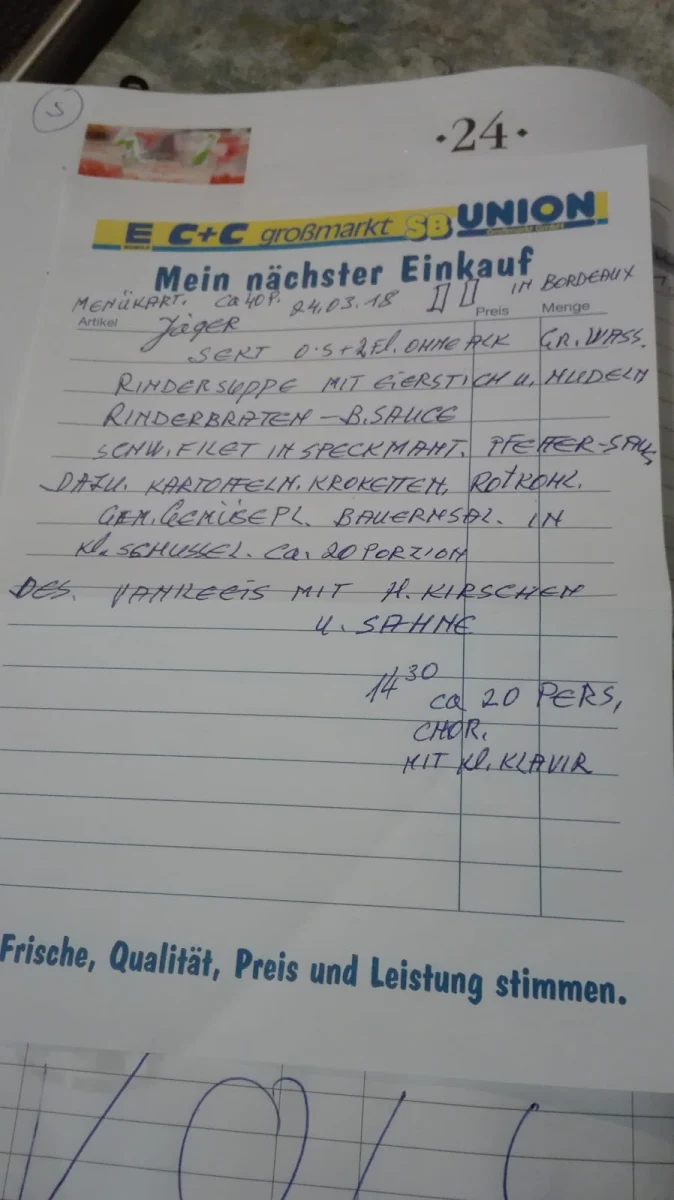 S
·24·
E C+C großmarkt SB UNION
Mein nächster Einkauf
MENÜKART. ca 40 P. 24.03.18 IN BORDEAUX
Artikel Preis Menge
Jäger
SEKT O.S+2Fl. OHNE ALK GR. WASS.
RINDERSUPPE MIT EIERSTICH u. NUDELN
RINDERBRATEN – B.SAUCE
SCHW. FILET IN SPECKMANT. PFEFFER-SAU
DAZU. KARTOFFELN. KROKETTEN, ROTKOHL.
GEM. GEMÜSEPL. BAUERNSAL. IN
Kl. SCHÜSSEL. ca. 20 PORZION
DES. VANILLEEIS MIT H. KIRSCHEN
u. SAHNE
14 30 ca 20 PERS,
CHOR.
MIT Kl. KLAVIR
Frische, Qualität, Preis und Leistung stimmen.